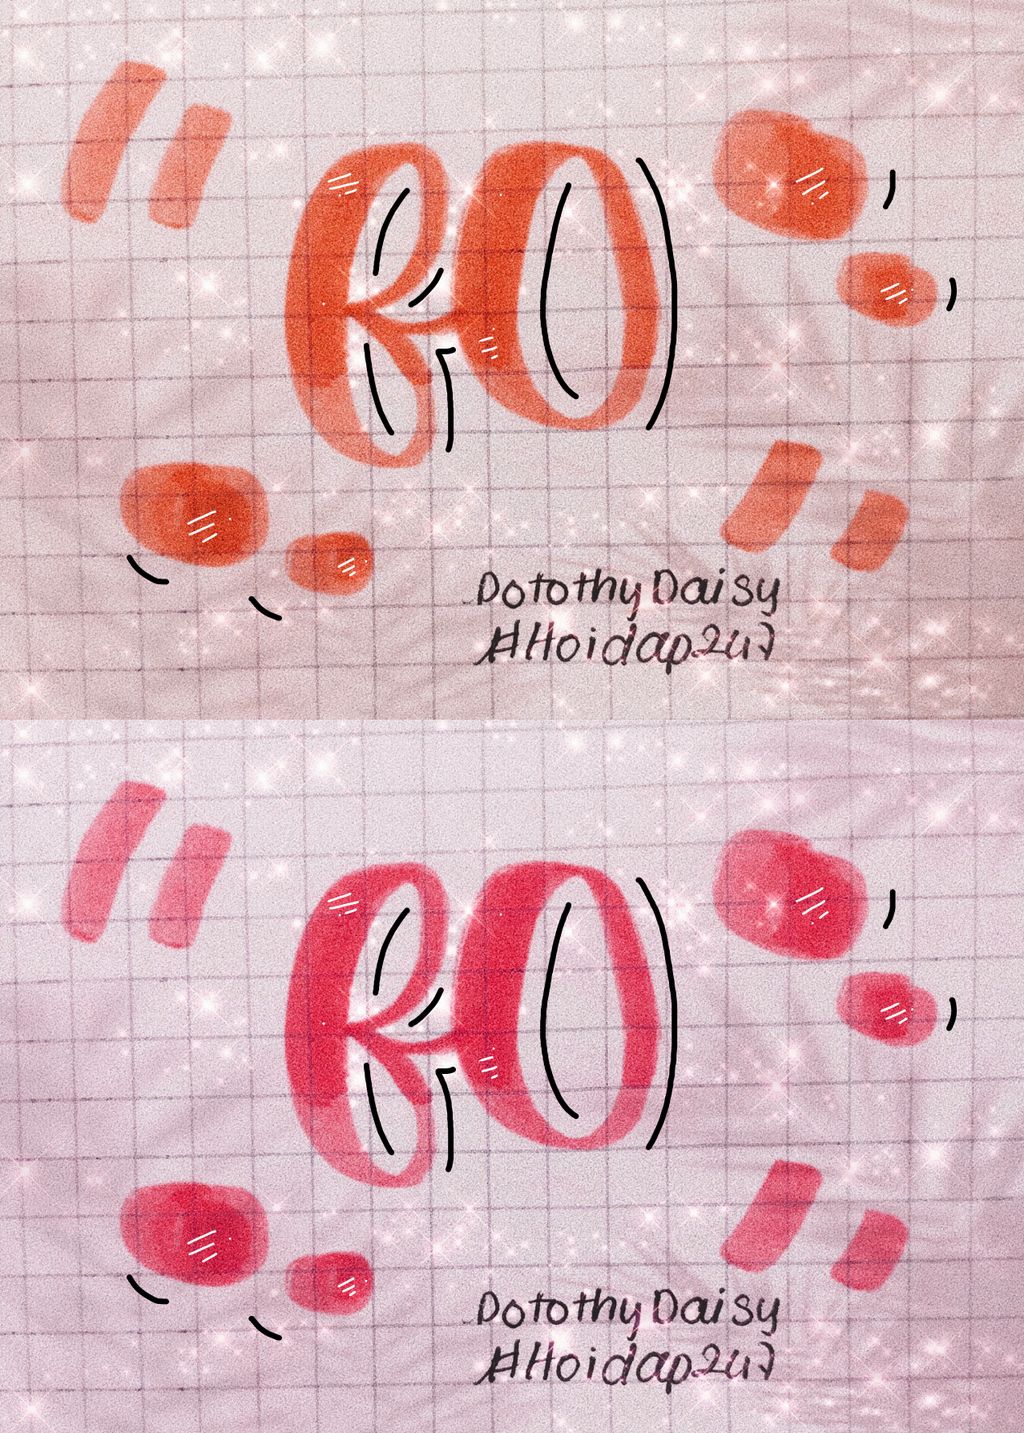 BO
Dotothy Daisy
#Hoidap247
BO
Dotothy Daisy
#Hoidap247